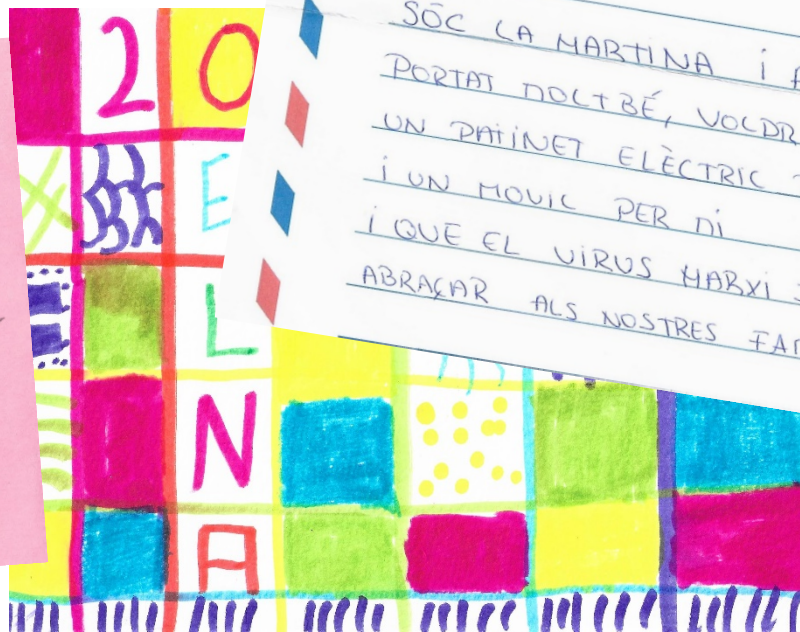 20
E
L
N
A
SÓC LA MARTINA i
PORTAT MOLT BÉ, VOLDR
UN PATiNET ELÈCTRIC
i UN MOViL PER Mi
i QUE EL ViRUS MARXi
ABRAÇAR ALS NOSTRES FA